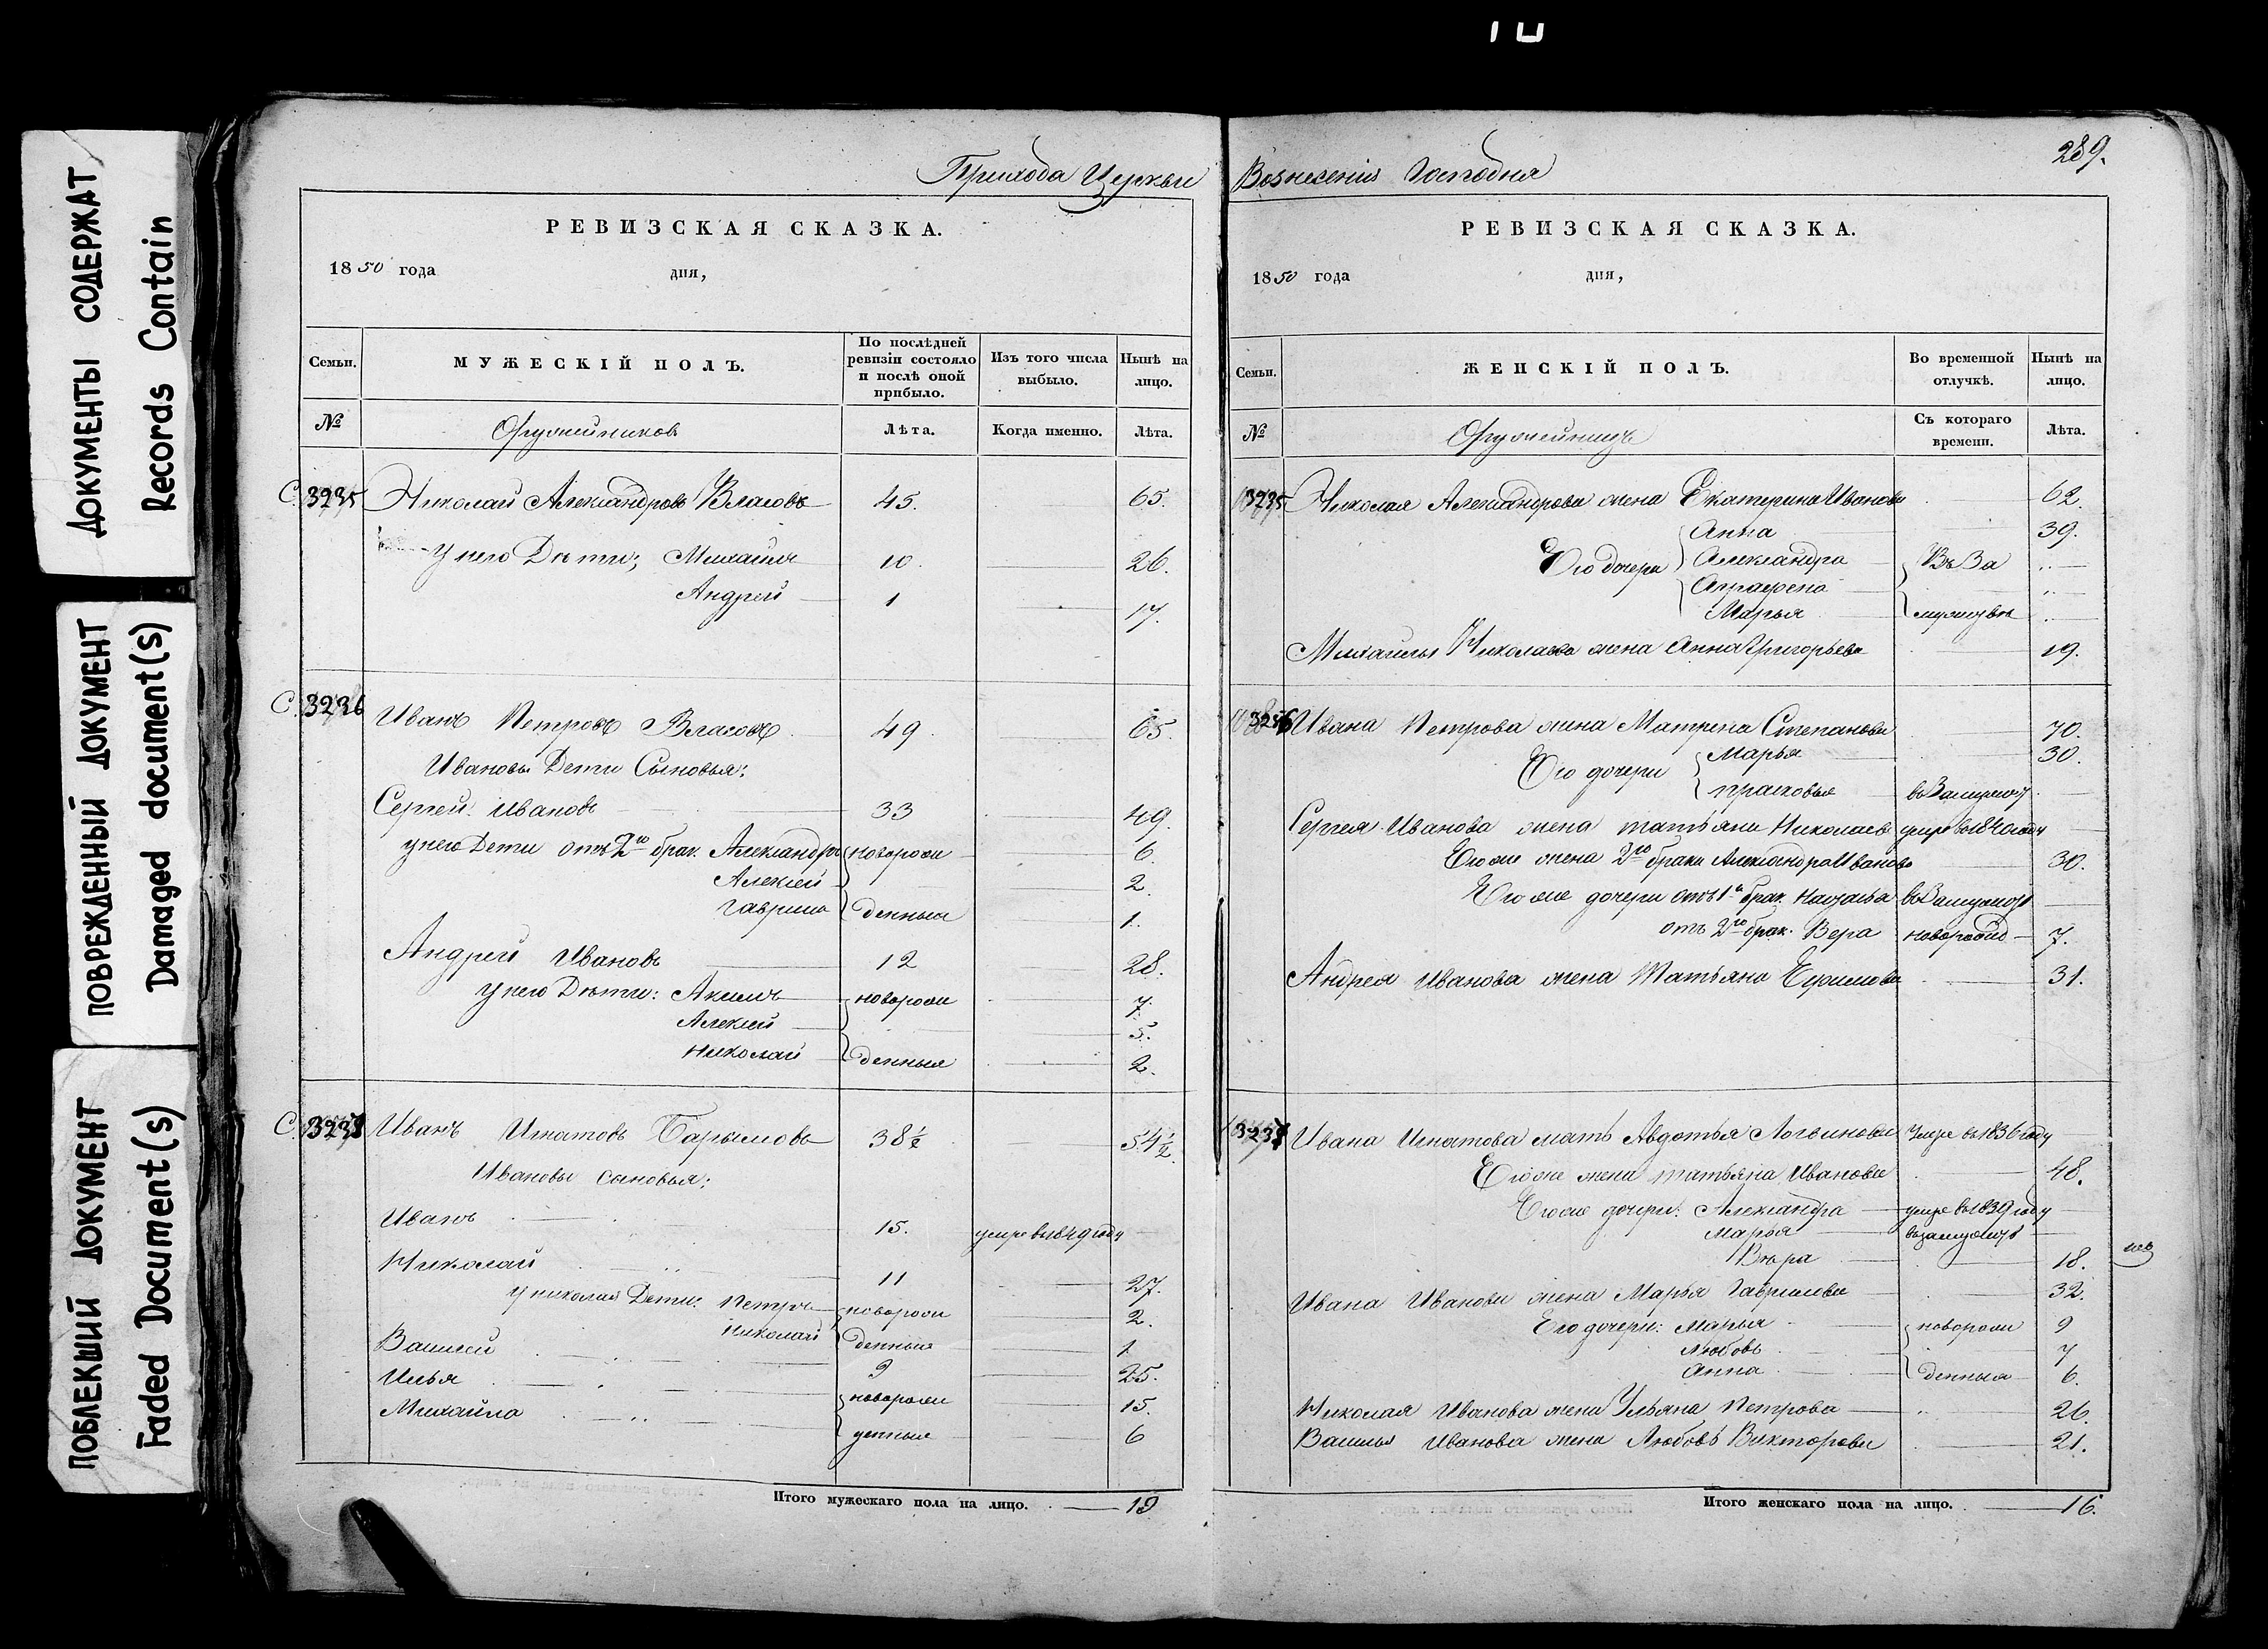 ДОКУМЕНТЫ СОДЕРЖАТ
Records Contain
ПОВРЕЖДЕННЫЙ ДОКУМЕНТ
Damaged document(s)
ПОБЛЕКШИЙ ДОКУМЕНТ
Faded Document(s)
Прихода Церкви
РЕВИЗСКАЯ СКАЗКА.
1850 года дня,
Семьи. МУЖЕСКІЙ ПОЛЪ. По послѣдней ревизіи состояло и послѣ оной прибыло. Изъ того числа выбыло. Нынѣ на лицо.
№ Оружейниковъ Лѣта. Когда именно. Лѣта.
С. 3235 Николай Александровъ Власовъ 45. 65.
у него Дѣти; Михаилъ 10. 26.
Андрей 1 17.
С. 3236 Иванъ Петровъ Власовъ 49 65.
Ивановы Дети Сыновья:
Сергей Ивановъ 33 49.
у него Дети отъ 2го брак. Александръ новорож 6.
Алексей 2.
Гаврила денныя 1.
Андрей Ивановъ 12 28.
у него Дѣти: Акимъ новорож 7.
Алексей 5.
Николай денныя 2.
С. Иванъ Игнатовъ Барымовъ 38½ 54½.
Ивановы сыновья:
Иванъ 15. умре въ 1849 году
Николай 11 27.
у николая Дети: Петръ новорож 2.
Николай денныя 1
Василей 9 25.
Илья новорож 15.
Михайла денные 6
Итого мужескаго пола на лицо. 19
289.
Вознесенія Господня
РЕВИЗСКАЯ СКАЗКА.
1850 года дня,
Семьи. ЖЕНСКІЙ ПОЛЪ. Во временной отлучкѣ. Нынѣ на лицо.
№ Оружейницъ Съ котораго времени. Лѣта.
3235 Николая Александрова жена Екатерина Иванова 62.
Анна 39.
Его дочери Александра Въ За
Аграфена
Марья мужествѣ
Михайлы Николаева жена Анна Григорьева 19.
3236 Ивана Петрова жена Матрена Степанова 70.
Его дочери Марья 30.
Прасковья въ Замужест
Сергея Иванова жена татьяна Николаев умре въ 1840 году
Его же жена 2го брака Александра Иванова 30.
Его же дочери отъ 1го брак. Наталья въ Замужест
отъ 2го брак. Вера новорожд 7.
Андрея Иванова жена Татьяна Ефимова 31.
Ивана Игнатова мать Авдотья Логвинова Умре въ 1836 году
Его же жена татьяна Иванова 48.
Его же дочери: Александра умре въ 1839 году
Марья въ замужест
Вѣра 18.
Ивана Иванова жена Марья Гаврилова 32.
Его дочери: Марья новорож 9
Любовь 7
Анна денныя 6.
Николая Иванова жена Ульяна Петрова 26.
Василья Иванова жена Любовь Викторова 21.
Итого женскаго пола на лицо. 16.